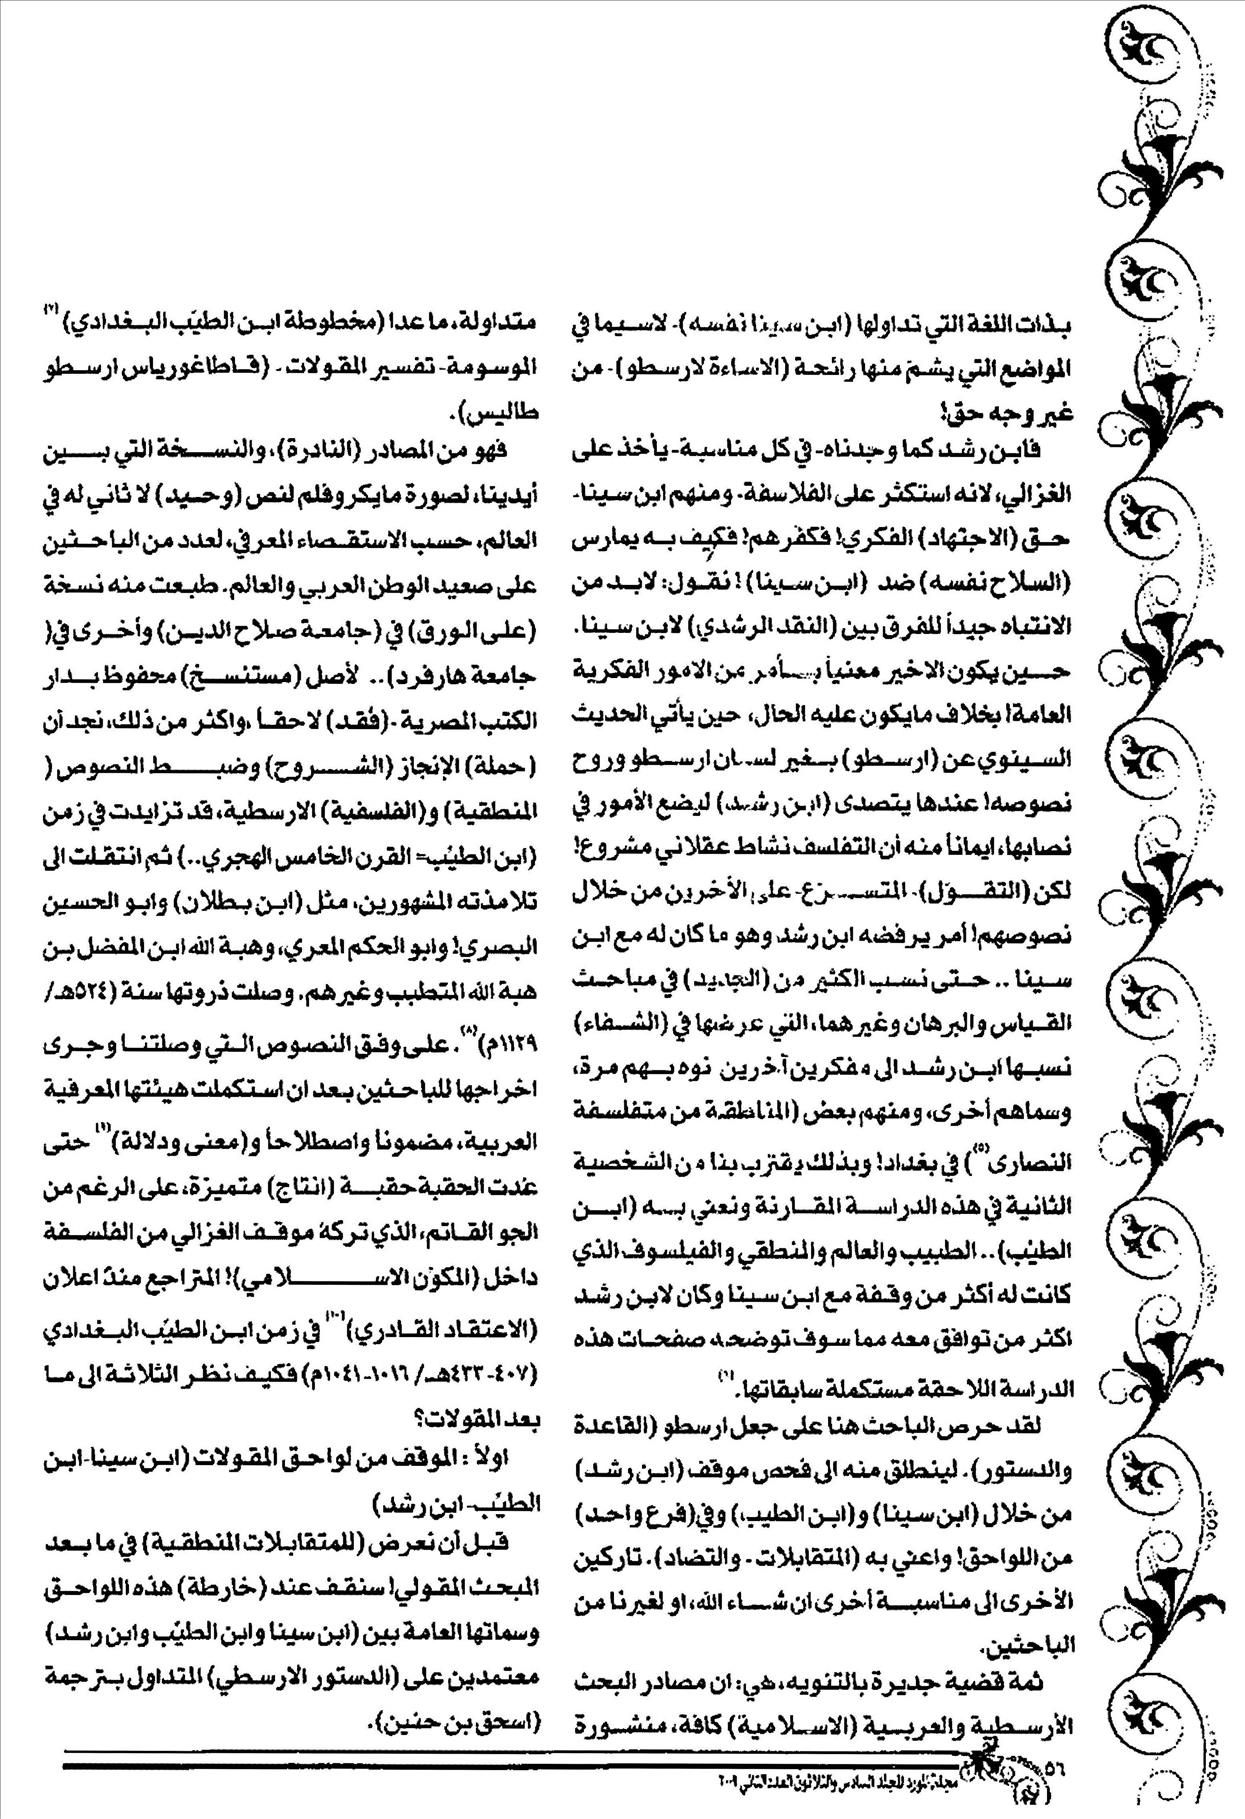 بذات اللغة التي تداولها (ابن سينا نفسه)- لاسيما في
المواضع التي يشمَ منها رائحة (الاساءة لارسطو)- من
غير وجه حق!
فابن رشد كما وجدناه- في كل مناسبة- يأخذ على
الغزالي، لانه استكثر على الفلاسفة- ومنهم ابن سينا-
حق (الاجتهاد) الفكري! فكفرهم! فكيف به يمارس
(السلاح نفسه) ضد (ابن سينا)! نقول: لابد من
الانتباه جيداً للفرق بين (النقد الرشدي) لابن سينا.
حين يكون الاخير معنياً بأمر من الامور الفكرية
العامة! بخلاف مايكون عليه الحال، حين يأتي الحديث
السينوي عن (ارسطو) بغير لسان ارسطو وروح
نصوصه! عندها يتصدى (ابن رشد) ليضع الأمور في
نصابها، ايماناً منه أن التفلسف نشاط عقلاني مشروع!
لكن (التقوّل)- المتسرع- على الأخرين من خلال
نصوصهم! أمر يرفضه ابن رشد وهو ما كان له مع ابن
سينا .. حتى نسب الكثير من (التجديد) في مباحث
القياس والبرهان وغيرهما، التي عرضها في (الشفاء)
نسبها ابن رشد الى مفكرين آخرين نوه بهم مرة،
وسماهم أخرى، ومنهم بعض (المناطقة من متفلسفة
النصارى(٥)) في بغداد! وبذلك يقترب بنا من الشخصية
الثانية في هذه الدراسة المقارنة ونعني به (ابن
الطيّب).. الطبيب والعالم والمنطقي والفيلسوف الذي
كانت له أكثر من وقفة مع ابن سينا وكان لابن رشد
اكثر من توافق معه مما سوف توضحه صفحات هذه
الدراسة اللاحقة مستكملة سابقاتها.(٦)
لقد حرص الباحث هنا على جعل ارسطو (القاعدة
والدستور). لينطلق منه الى فحص موقف (ابن رشد)
من خلال (ابن سينا) و(ابن الطيب) وفي(فرع واحد)
من اللواحق! واعني به (المتقابلات- والتضاد). تاركين
الأخرى الى مناسبة أخرى ان شاء الله، او لغيرنا من
الباحثين.
ثمة قضية جديرة بالتنويه، هي: ان مصادر البحث
الأرسطية والعربية (الاسلامية) كافة، منشورة
متداولة، ما عدا (مخطوطة ابن الطيّب البغدادي)(٧)
الموسومة- تفسير المقولات- (قاطاغورياس ارسطو
طاليس).
فهو من المصادر (النادرة)، والنسخة التي بين
أيدينا، لصورة مايكروفلم لنص (وحيد) لا ثاني له في
العالم، حسب الاستقصاء المعرفي، لعدد من الباحثين
على صعيد الوطن العربي والعالم. طبعت منه نسخة
(على الورق) في (جامعة صلاح الدين) وأخرى في(
جامعة هارفرد).. لأصل (مستنسخ) محفوظ بدار
الكتب المصرية -(فُقد) لاحقاً ،واكثر من ذلك، نجد أن
(حملة) الإنجاز (الشروح) وضبط النصوص (
المنطقية) و(الفلسفية) الارسطية، قد تزايدت في زمن
(ابن الطيّب= القرن الخامس الهجري..) ثم انتقلت الى
تلامذته المشهورين، مثل (ابن بطلان) وابو الحسين
البصري! وابو الحكم المعري، وهبة الله ابن المفضل بن
هبة الله المتطبب وغيرهم. وصلت ذروتها سنة (٥٢٤هـ/
١١٢٩م)(٨). على وفق النصوص التي وصلتنا وجرى
اخراجها للباحثين بعد ان استكملت هيئتها المعرفية
العربية، مضموناً واصطلاحاً و(معنى ودلالة)(٩) حتى
عُدت الحقبة حقبة (انتاج) متميزة، على الرغم من
الجو القاتم، الذي تركهُ موقف الغزالي من الفلسفة
داخل (المكوّن الاسلامي)! المتراجع منذ اعلان
(الاعتقاد القادري)(١٠) في زمن ابن الطيّب البغدادي
(٤٠٧-٤٣٣هـ/ ١٠١٦-١٠٤١م) فكيف نظر الثلاثة الى ما
بعد المقولات؟
اولاً : الموقف من لواحق المقولات (ابن سينا-ابن
الطيّب- ابن رشد)
قبل أن نعرض (للمتقابلات المنطقية) في ما بعد
المبحث المقولي! سنقف عند (خارطة) هذه اللواحق
وسماتها العامة بين (ابن سينا وابن الطيّب وابن رشد)
معتمدين على (الدستور الارسطي) المتداول بترجمة
(اسحق بن حنين).
٥٦
مجلة المورد المجلد السادس والثلاثون العدد الثاني ٢٠٠٩